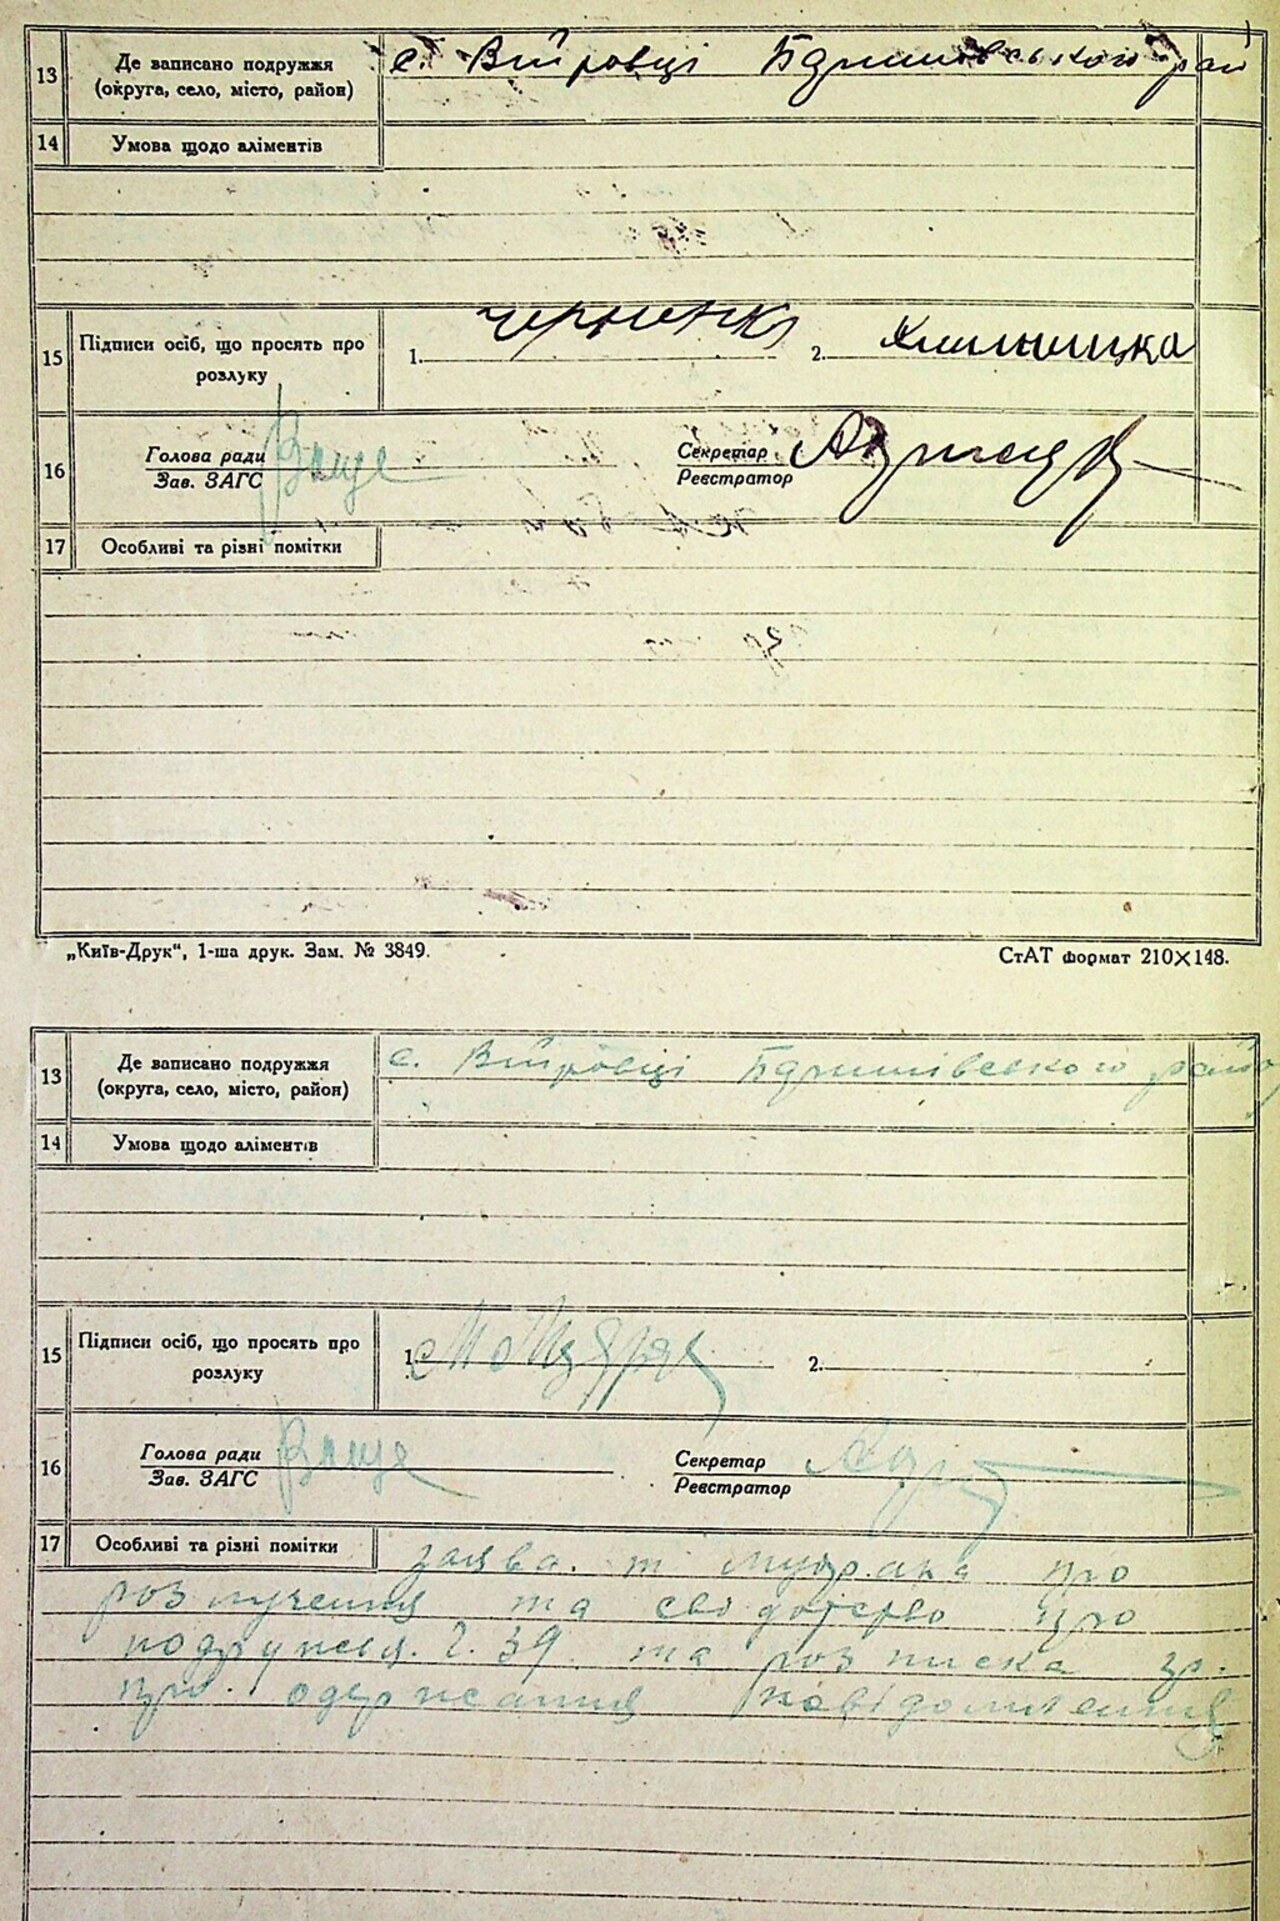 13 Де записано подружжя
(округа, село, місто, район)
с. Війтовці
14 Умова щодо аліментів
15 Підписи осіб, що просять про
розлуку
1. 2. Хмільницка
16 Голова ради
Зав. ЗАГС
Секретар
Реєстратор
17 Особливі та різні помітки
„Київ-Друк“, 1-ша друк. Зам. № 3849.
СтАТ формат 210×148.
13 Де записано подружжя
(округа, село, місто, район)
с. Війтовці
14 Умова щодо аліментів
15 Підписи осіб, що просять про
розлуку
1. 2.
16 Голова ради
Зав. ЗАГС
Секретар
Реєстратор
17 Особливі та різні помітки
заява про
розлучення та свідотство про
ч. 39 та розписка
про одержання повідомлення